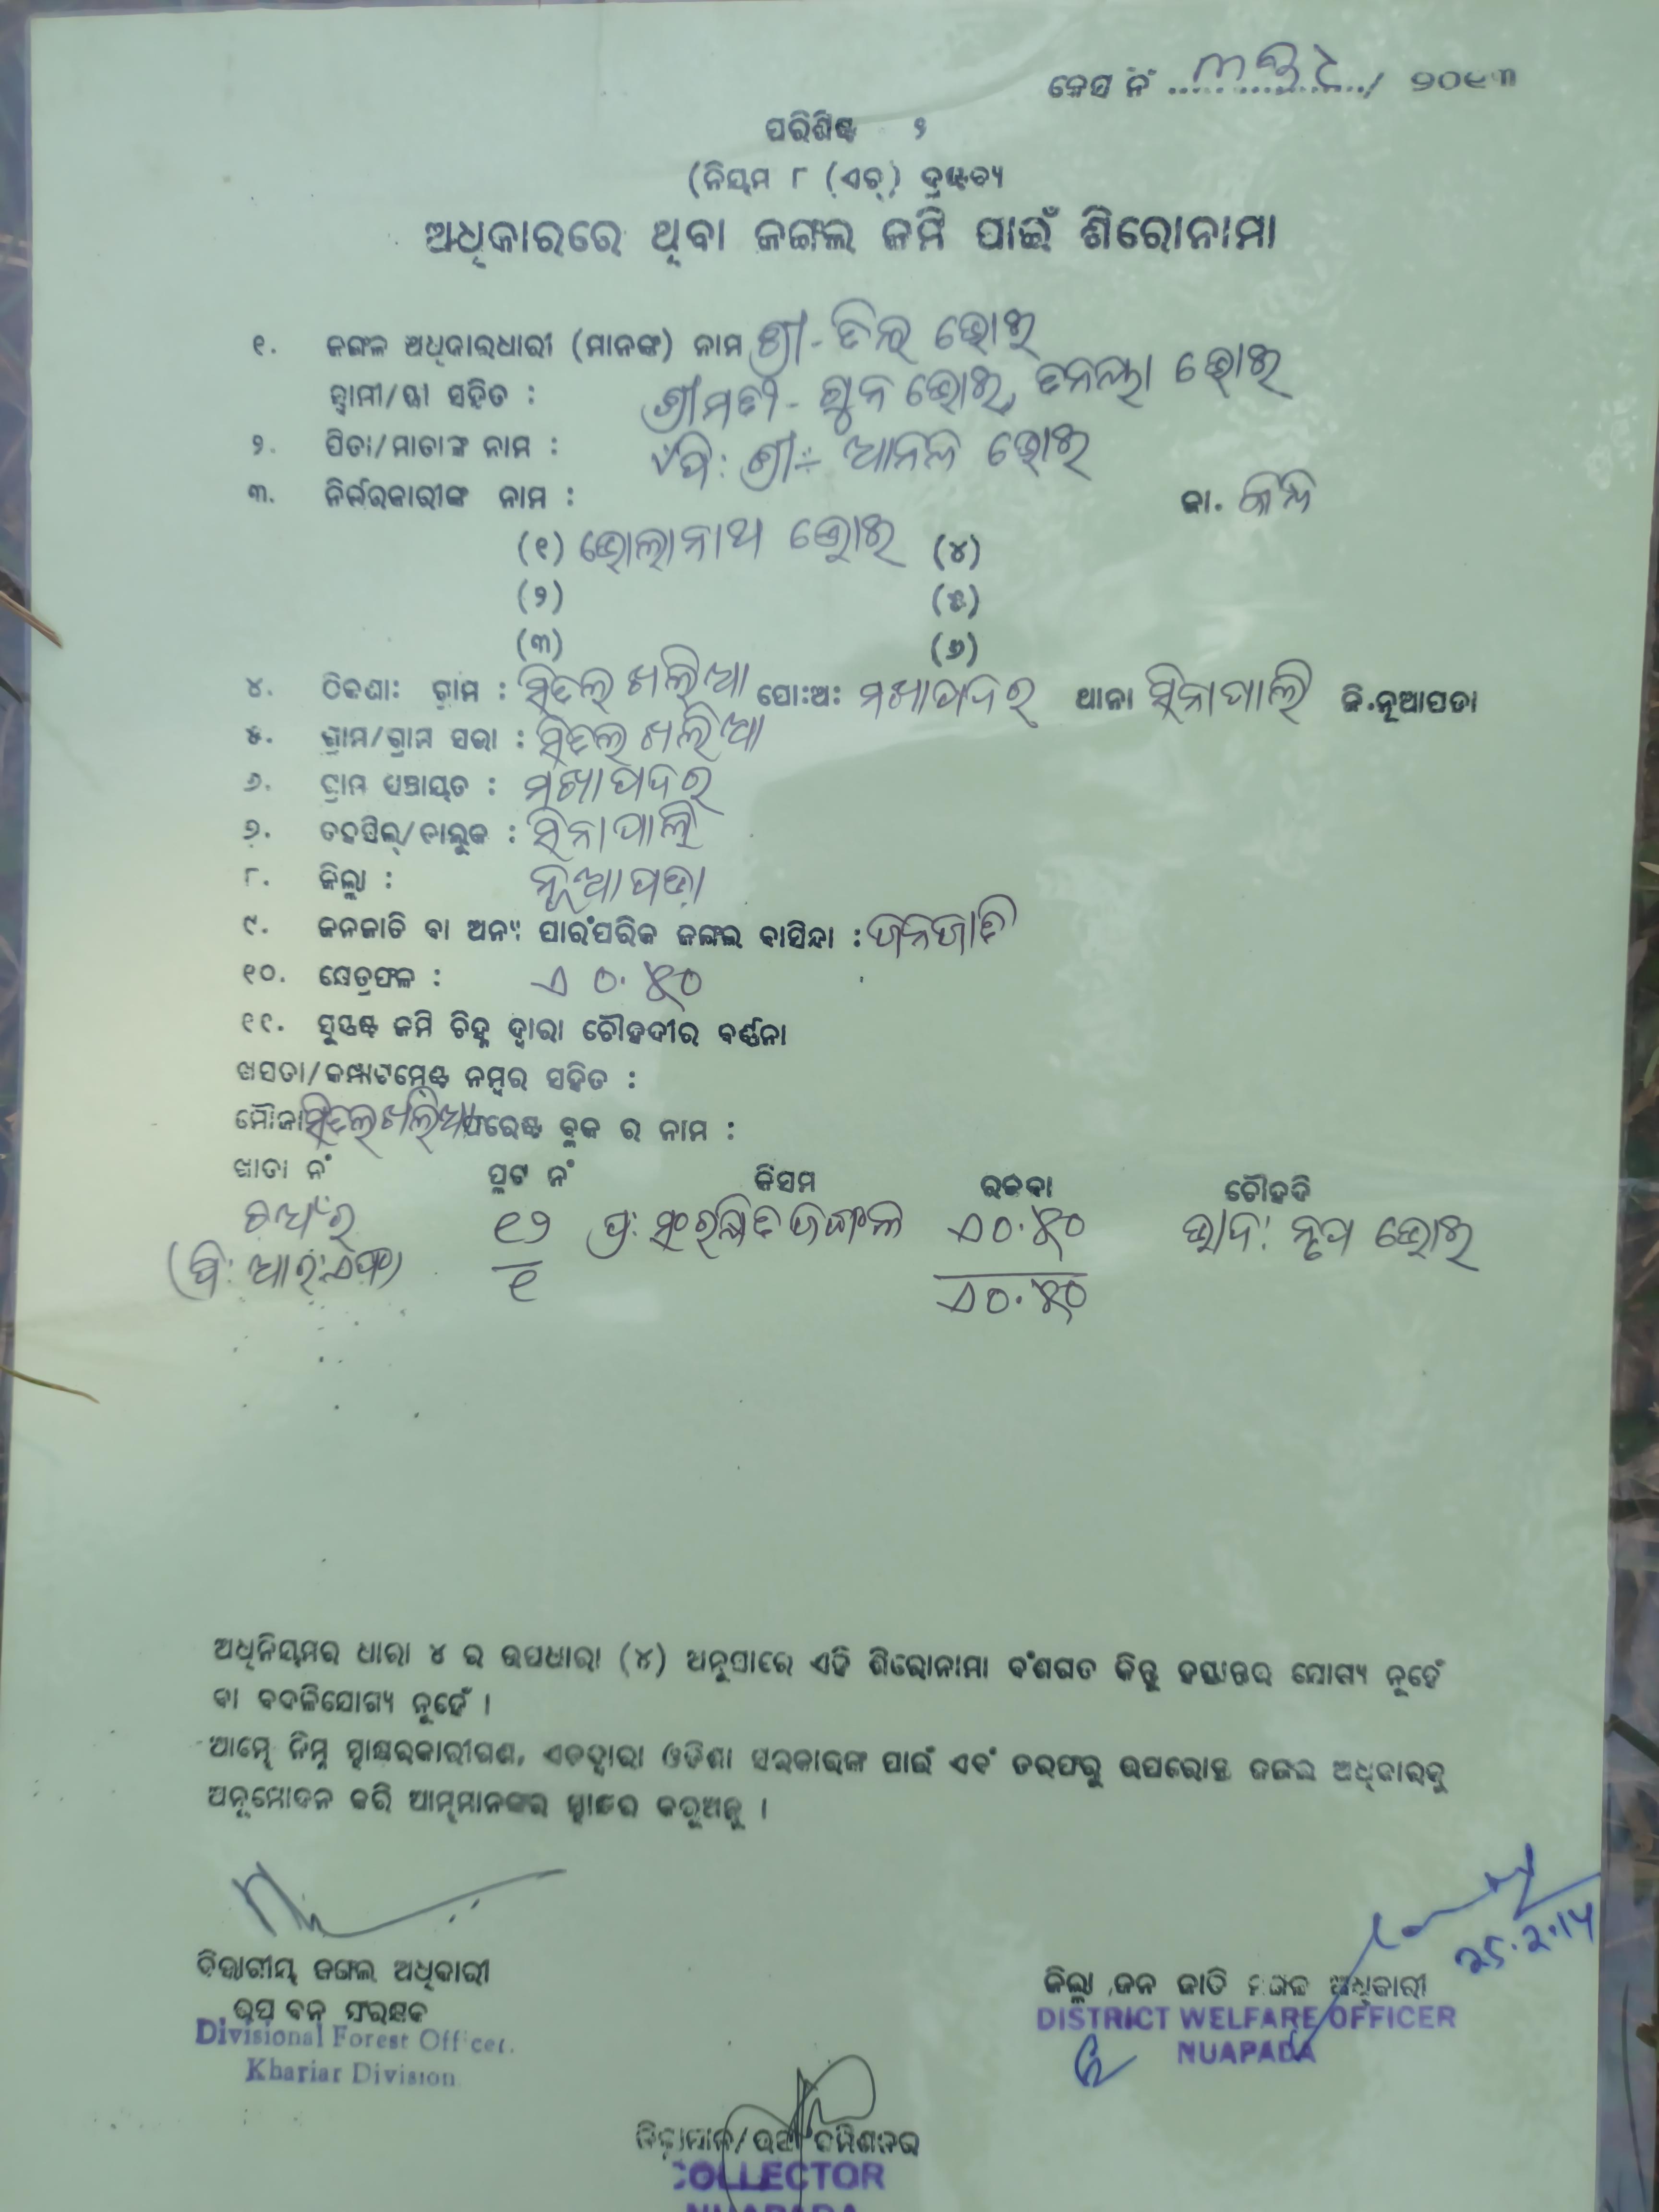 କେସ ନଂ ................./ ୨୦୧୩
ପରିଶିଷ୍ଟ ୨
(ନିୟମ ୮ (ଏଚ୍) ଦ୍ରଷ୍ଟବ୍ୟ
ଅଧିକାରରେ ଥିବା ଜଙ୍ଗଲ ଜମି ପାଇଁ ଶିରୋନାମା
୧. ଜଙ୍ଗଲ ଅଧିକାରଧାରୀ (ମାନଙ୍କ) ନାମ ଶ୍ରୀ- ଭୋଇ
ସ୍ୱାମୀ/ସ୍ତ୍ରୀ ସହିତ : ଶ୍ରୀମତୀ- ଗୁନ ଭୋଇ, ଭୋଇ
୨. ପିତା/ମାତାଙ୍କ ନାମ : ପି: ଶ୍ରୀ ଭୋଇ
୩. ନିର୍ଭରକାରୀଙ୍କ ନାମ : ଜା.
(୧) ଭୋଲାନାଥ ଭୋଇ (୪)
(୨) (୫)
(୩) (୬)
୪. ଠିକଣା: ଗ୍ରାମ : ପୋ:ଅ: ମଖାପଦର ଥାନା ସିନାପାଲି ଜି.ନୂଆପଡା
୫. ଗ୍ରାମ/ଗ୍ରାମ ସଭା :
୬. ଗ୍ରାମ ପଞ୍ଚାୟତ : ମଖାପଦର
୭. ତହସିଲ୍/ତାଲୁକ : ସିନାପାଲି
୮. ଜିଲ୍ଲା : ନୂଆପଡା
୯. ଜନଜାତି ବା ଅନ୍ୟ ପାରଂପରିକ ଜଙ୍ଗଲ ବାସିନ୍ଦା : ଜନଜାତି
୧୦. କ୍ଷେତ୍ରଫଳ : ଏ ୦.୫୦
୧୧. ସୁସ୍ପଷ୍ଟ ଜମି ଚିହ୍ନ ଦ୍ୱାରା ଚୌହଦୀର ବର୍ଣ୍ଣନା
ଖସଡା/କମ୍ପାଟମେଣ୍ଟ ନମ୍ବର ସହିତ :
ମୌଜା ଫରେଷ୍ଟ ବ୍ଲକ ର ନାମ :
ଖାତା ନଂ ପ୍ଲଟ ନଂ କିସମ ରକବା ଚୌହଦି
୧୨ ପ୍ର: ସଂରକ୍ଷିତ ଜଙ୍ଗଲ ଏ୦.୫୦ ଭୋଇ
(ପି: ଆର:ଏଫ) ୧ ଏ୦.୫୦
ଅଧିନିୟମର ଧାରା ୪ ର ଉପଧାରା (୪) ଅନୁସାରେ ଏହି ଶିରୋନାମା ବଂଶଗତ କିନ୍ତୁ ହସ୍ତାନ୍ତର ଯୋଗ୍ୟ ନୁହେଁ
ବା ବଦଳିଯୋଗ୍ୟ ନୁହେଁ ।
ଆମ୍ଭେ ନିମ୍ନ ସ୍ୱାକ୍ଷରକାରୀଗଣ, ଏତଦ୍ୱାରା ଓଡିଶା ସରକାରଙ୍କ ପାଇଁ ଏବଂ ତରଫରୁ ଉପରୋକ୍ତ ଜଙ୍ଗଲ ଅଧିକାରକୁ
ଅନୁମୋଦନ କରି ଆମ୍ଭମାନଙ୍କର ସ୍ୱାକ୍ଷର କରୁଅଛୁ ।
25.2.14
ବିଭାଗୀୟ ଜଙ୍ଗଲ ଅଧିକାରୀ
ଉପ ବନ ସଂରକ୍ଷକ
Divisional Forest Officer.
Khariar Division
ଜିଲ୍ଲା ଜନ ଜାତି ମଙ୍ଗଳ ଅଧିକାରୀ
DISTRICT WELFARE OFFICER
NUAPADA
ଜିଲ୍ଲାପାଳ/ଉପ କମିଶନର
COLLECTOR
NUAPADA